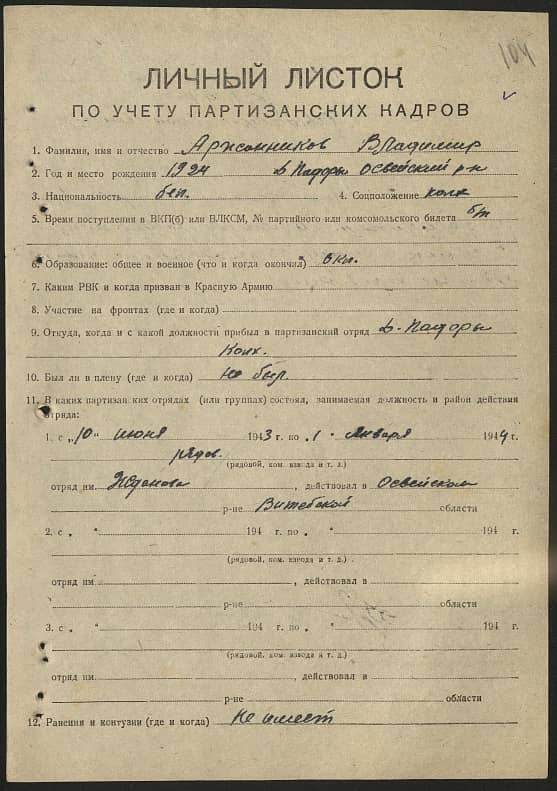 104
ЛИЧНЫЙ ЛИСТОК
ПО УЧЕТУ ПАРТИЗАНСКИХ КАДРОВ
1. Фамилия, имя и отчество Аржанников Владимир
2. Год и место рождения 1924 д. Падоры Освейский р-н
3. Национальность бел. 4. Соцположение колх
5. Время поступления в ВКП(б) или ВЛКСМ, № партийного или комсомольского билета б/п
6. Образование: общее и военное (что и когда окончил) 6 кл.
7. Каким РВК и когда призван в Красную Армию
8. Участие на фронтах (где и когда)
9. Откуда, когда и с какой должности прибыл в партизанский отряд д. Падоры
Колх.
10. Был ли в плену (где и когда) не был.
11. В каких партизанских отрядах (или группах) состоял, занимаемая должность и район действия
отряда:
1. с „10" июня 1943 г. по „1" января 1944 г.
рядов.
(рядовой, ком. взвода и т. д.)
отряд им. Жданова, действовал в Освейском
р-не Витебской области
2. с „ " 194 г. по „ " 194 г.
(рядовой, ком. взвода и т. д.)
отряд им. , действовал в
р-не области
3. с „ " 194 г. по „ " 194 г.
(рядовой, ком. взвода и т. д.)
отряд им. , действовал в
р-не области
12. Ранения и контузии (где и когда) Не имеет